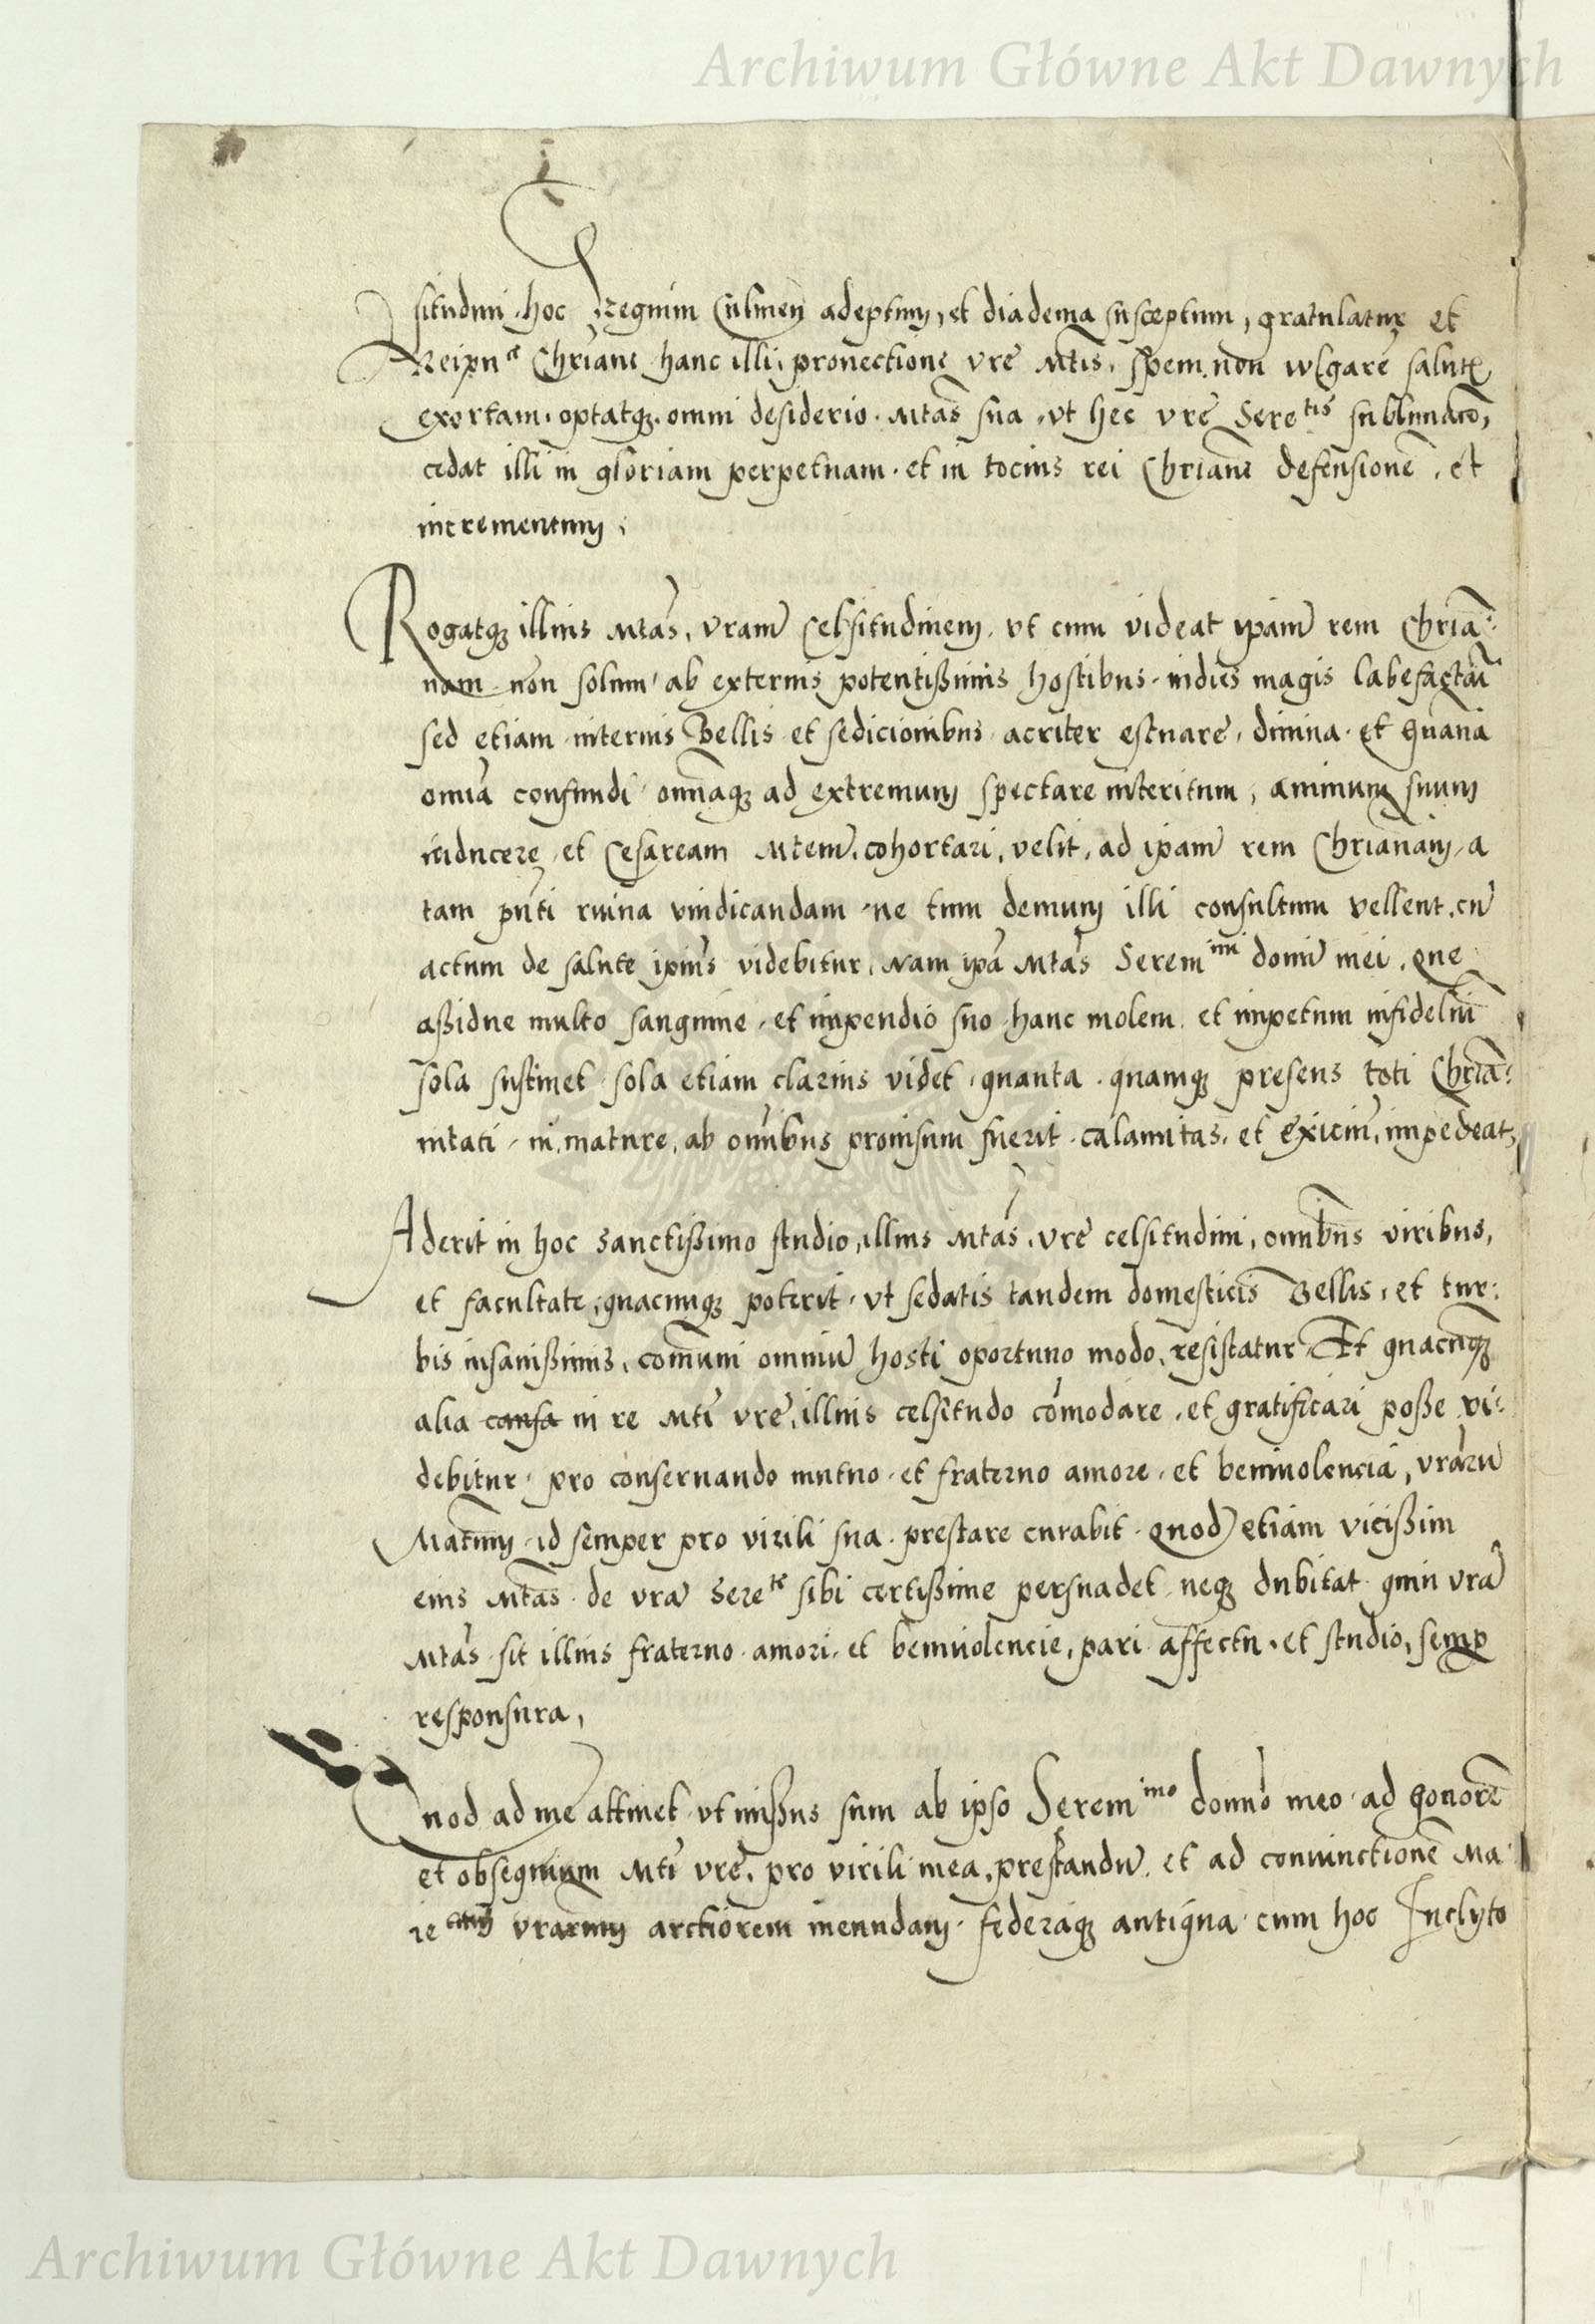 Archiwum Główne Akt Dawnych
situdini hoc Regnum Culmen adeptum, et diadema susceptum, gratulatur et
Reipu^ce Chriane hanc illi, provectione vre Mtis, spem non wlgare salutis
exortam, optatq3 omni desiderio Mtas sua, vt hec vre Sere^tis sublimaco,
cedat illi in gloriam perpetuam et in tocius rei Chriane defensione, et
incrementum,
Rogatq3 illius Mtas, vram Celsitudinem, vt cum videat ipam rem Chria:
nam non solum ab externis potentißimis hostibus indies magis labefactari
sed etiam internis Bellis et sedicionibus acriter estuare, divina et humana
omnia confundi omniaq3 ad extremum spectare interitum, animum suum
inducere et Cesaream Mtem cohortari, velit, ad ipam rem Chrianam a
tam pnti ruina vindicandam ne tum demum illi consultum vellent, cu
actum de salute ipius videbitur, Nam ipa Mtas Serem^imi domi mei, que
aßidue multo sanguine, et impendio suo hanc molem et impetum infideliu
sola sustinet sola etiam clarius videt, quanta quamq3 presens toti Chria:
nitati, ni mature, ab omibus provisum fuerit, calamitas, et exiciu, impedeat,
Aderit in hoc sanctißimo studio, illius Mtas, vre celsitudini, omnibus viribus,
et facultate, quacumq3 poterit, vt sedatis tandem domesticis Bellis, et tur:
bis insanißimis, comuni omniu hosti oportuno modo, resistatur Et quacumq3
alia causa in re Mti vre, illius celsitudo comodare, et gratificari poße vi:
debitur, pro conservando mutuo et fraterno amore, et benivolencia, vraru
Matum, id semper pro virili sua prestare curabit quod etiam vicißim
eius Mtas de vra Sere^te sibi certißime persuadet neq3 dubitat quin vra
Mtas sit illius fraterno amori, et benivolencie, pari affectu et studio, semp
responsura,
Quod ad me attinet vt mißus sum ab ipso Serem^imo domno meo ad honore
et obsequium Mti vre, pro virili mea, prestandu, et ad coniunctione Ma
ie^atum vrarum arctiorem ineundam federaq3 antiqua cum hoc Inclyto
Archiwum Główne Akt Dawnych